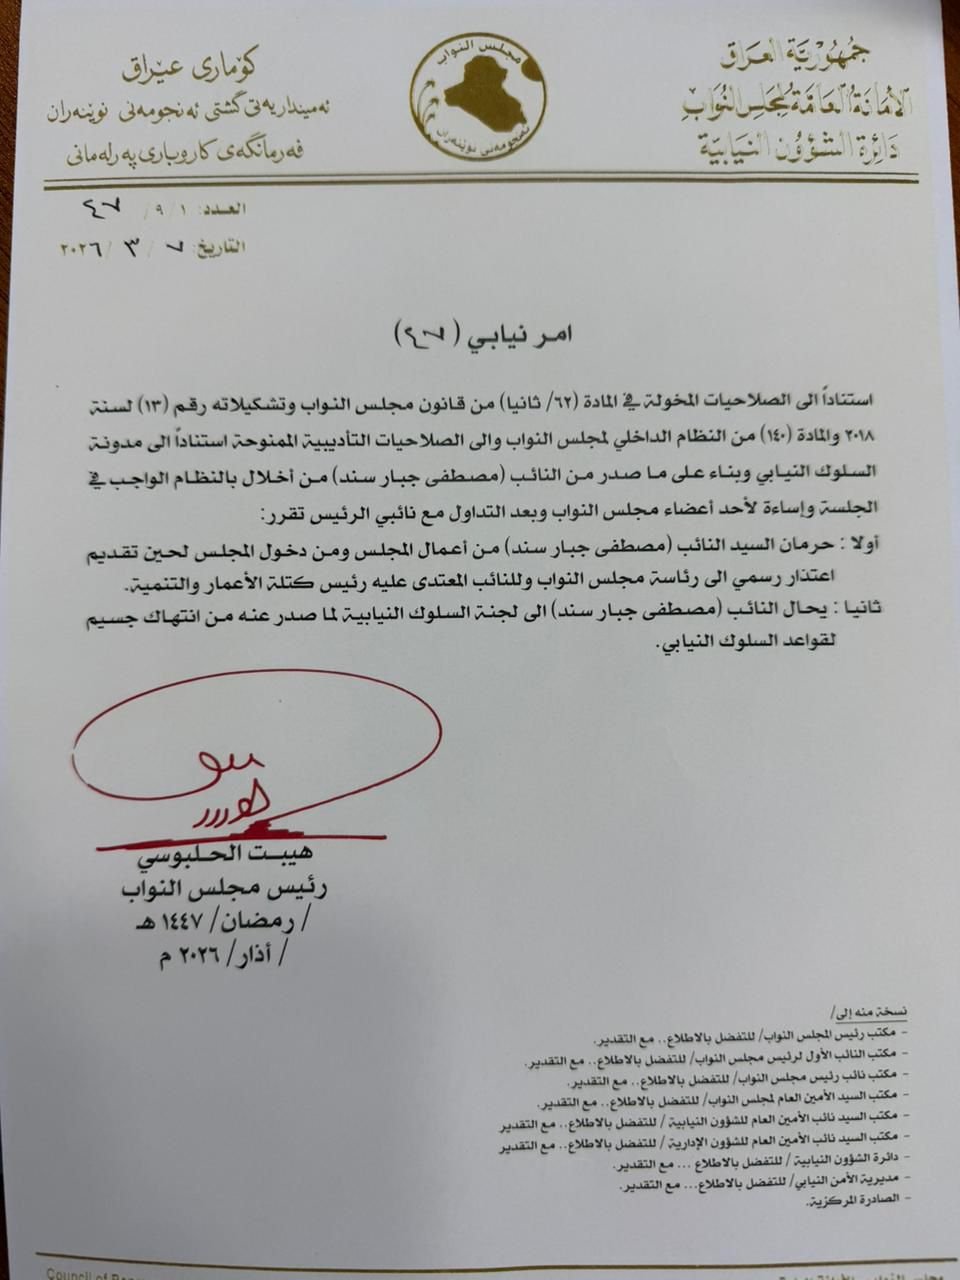 جمهورية العراق
الأمانة العامة لمجلس النواب
دائرة الشؤون النيابية
مجلس النواب
ئەنجومەنی نوێنەران
كۆماری عێراق
ئەمینداریەتی گشتی ئەنجومەنی نوێنەران
فەرمانگەی كاروباری پەرلەمانی
العدد: ١ / ٩ / ٤٧
التاريخ: ٧ / ٣ / ٢٠٢٦
امر نيابي (٤٧)
استناداً الى الصلاحيات المخولة في المادة (٦٢/ ثانيا) من قانون مجلس النواب وتشكيلاته رقم (١٣) لسنة
٢٠١٨ والمادة (١٤٠) من النظام الداخلي لمجلس النواب والى الصلاحيات التأديبية الممنوحة استناداً الى مدونة
السلوك النيابي وبناء على ما صدر من النائب (مصطفى جبار سند) من أخلال بالنظام الواجب في
الجلسة وإساءة لأحد أعضاء مجلس النواب وبعد التداول مع نائبي الرئيس تقرر:
أولا : حرمان السيد النائب (مصطفى جبار سند) من أعمال المجلس ومن دخول المجلس لحين تقديم
اعتذار رسمي الى رئاسة مجلس النواب وللنائب المعتدى عليه رئيس كتلة الأعمار والتنمية.
ثانيا : يحال النائب (مصطفى جبار سند) الى لجنة السلوك النيابية لما صدر عنه من انتهاك جسيم
لقواعد السلوك النيابي.
هيبت الحلبوسي
رئيس مجلس النواب
/ رمضان/ ١٤٤٧ هـ
/ أذار/ ٢٠٢٦ م
نسخة منه إلى/
- مكتب رئيس المجلس النواب/ للتفضل بالاطلاع.. مع التقدير.
- مكتب النائب الأول لرئيس مجلس النواب/ للتفضل بالاطلاع.. مع التقدير.
- مكتب نائب رئيس مجلس النواب/ للتفضل بالاطلاع.. مع التقدير.
- مكتب السيد الأمين العام لمجلس النواب/ للتفضل بالاطلاع.. مع التقدير.
- مكتب السيد نائب الأمين العام للشؤون النيابية / للتفضل بالاطلاع.. مع التقدير
- مكتب السيد نائب الأمين العام للشؤون الإدارية / للتفضل بالاطلاع.. مع التقدير
- دائرة الشؤون النيابية / للتفضل بالاطلاع ... مع التقدير.
- مديرية الأمن النيابي/ للتفضل بالاطلاع... مع التقدير.
- الصادرة المركزية.